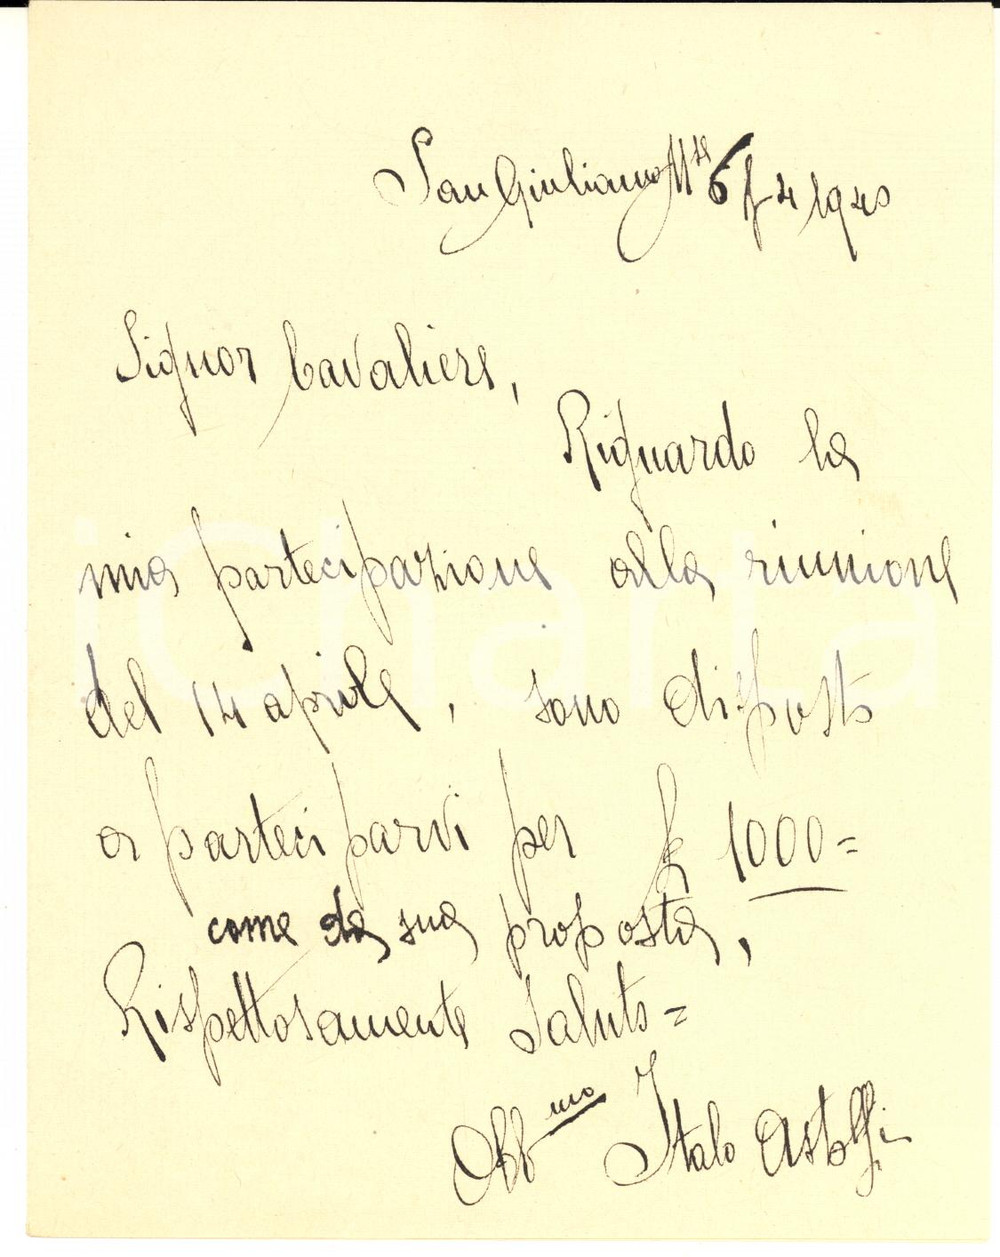 San Giuliano Mse 6/4/1940
Signor Cavaliere,
Riguardo la
mia partecipazione alla riunione
del 14 aprile, sono disposto
a parteciparvi per £ 1000=
come da sua proposta,
Rispettosamente Saluto=
Obbmo Italo Astolfi
iCharta